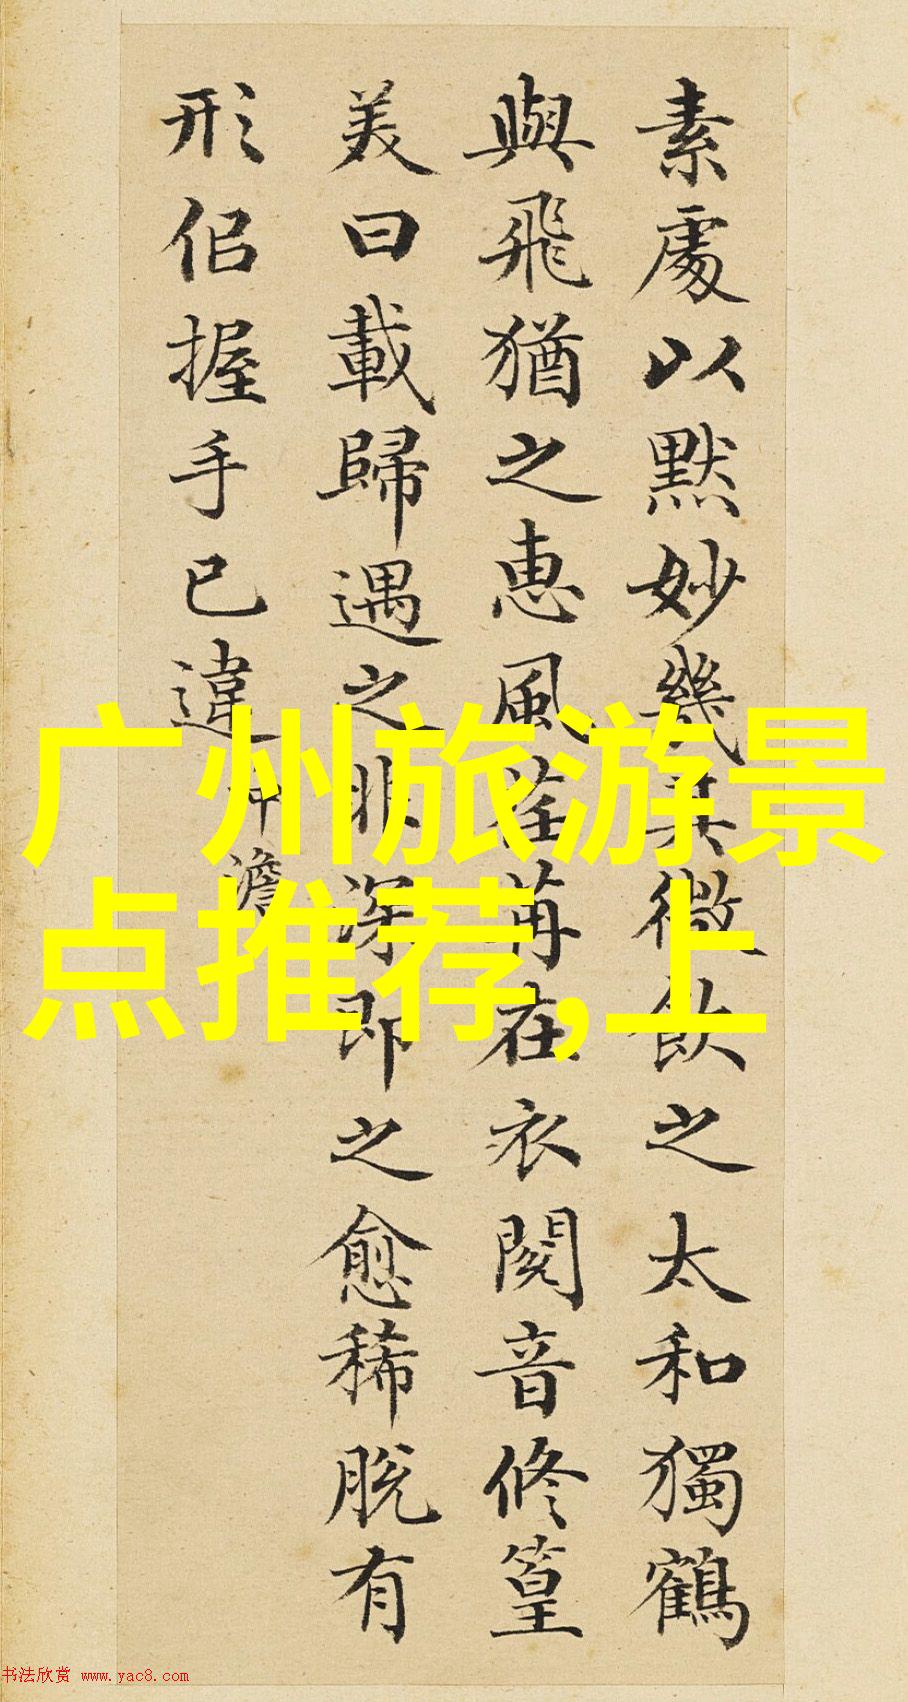 素處以默妙幾其微飲之太和獨鶴
與飛猶之惠風荏苒在衣閱音修篁
美曰載歸遇之非深即之愈稀脫有
形佀握手已違
沖澹
广州旅游景
点推荐,上
书法欣赏 www.yac8.com